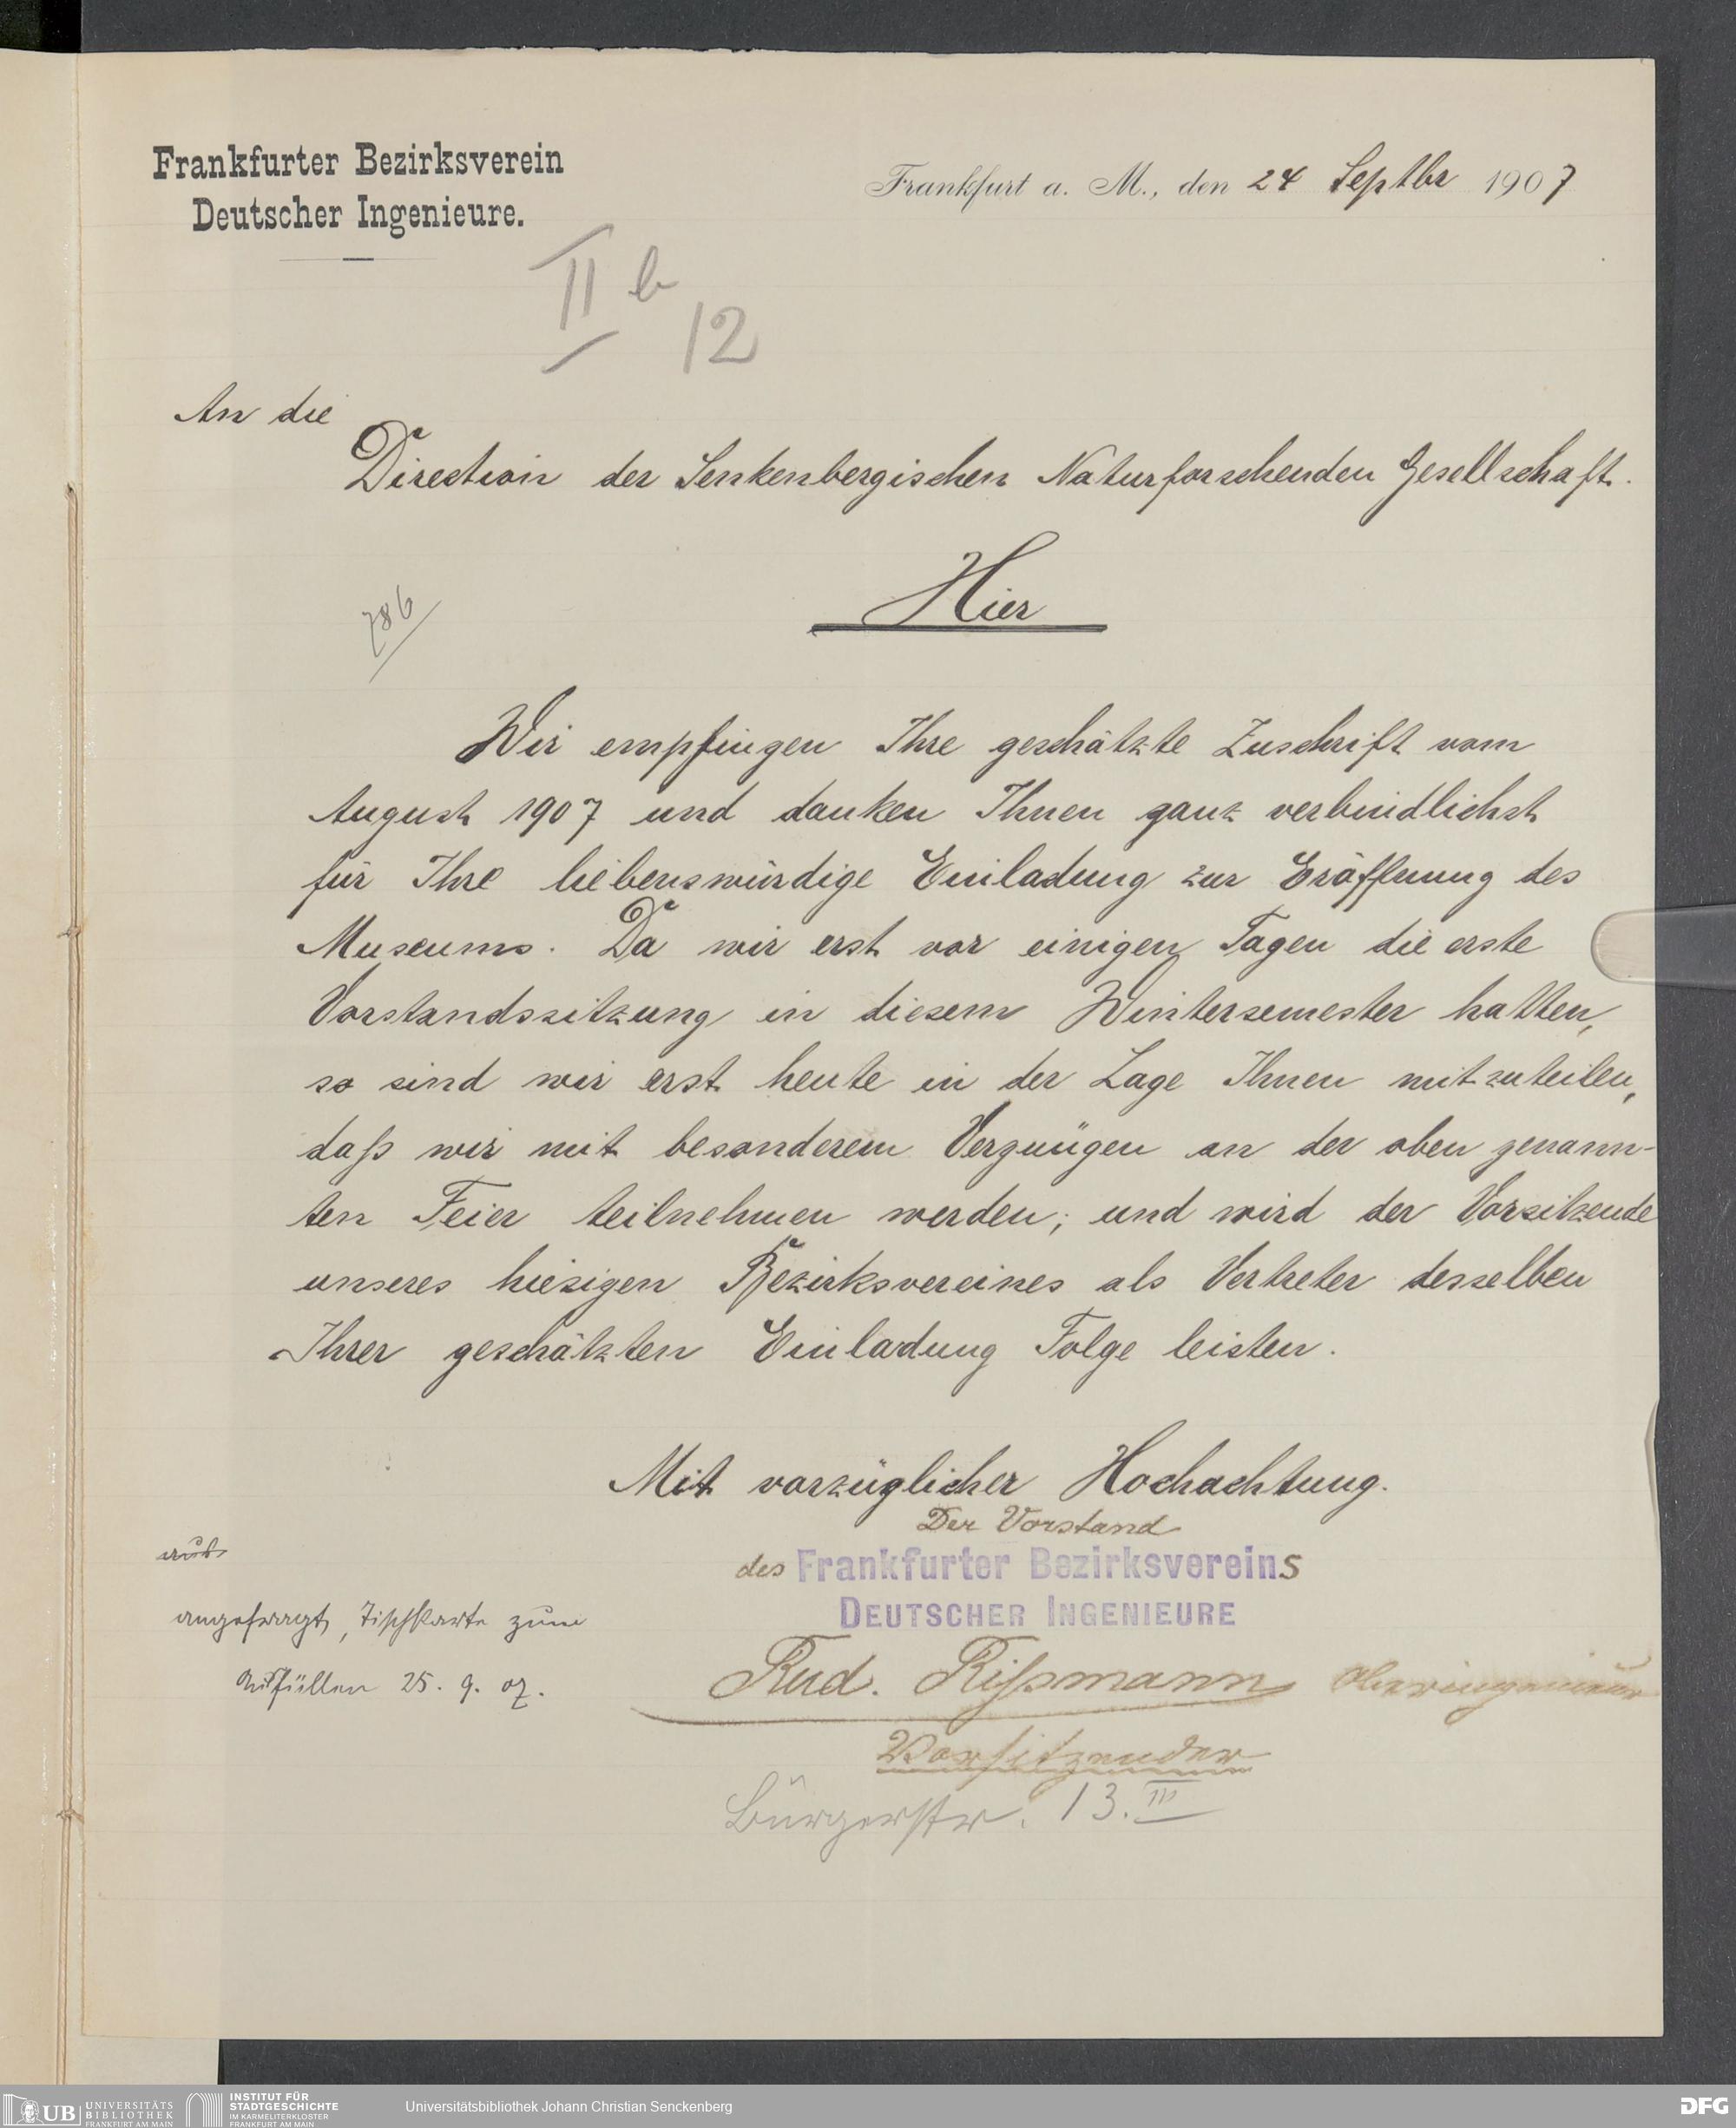 Frankfurter Bezirksverein
Deutscher Ingenieure.
Frankfurt a. M., den 24 Septbr 1907
II b
12
An die
Direction der Senkenbergischen Naturforschenden Gesellschaft.
Hier
786
Wir empfingen Ihre geschätzte Zuschrift vom
August 1907 und danken Ihnen ganz verbindlichst
für Ihre liebenswürdige Einladung zur Eröffnung des
Museums. Da wir erst vor einigen Tagen die erste
Vorstandssitzung in diesem Wintersemester hatten,
so sind wir erst heute in der Lage Ihnen mitzuteilen,
daß wir mit besonderem Vergnügen an der oben genann-
ten Feier teilnehmen werden; und wird der Vorsitzende
unseres hiesigen Bezirksvereines als Vertreter desselben
Ihrer geschätzten Einladung Folge leisten.
Mit vorzüglicher Hochachtung.
Der Vorstand
des Frankfurter Bezirksvereins
DEUTSCHER INGENIEURE
Rud. Rißmann Oberingenieur
Vorsitzender
Bürgerstr. 13. III
aus
angefragt, Tischkarte zum
Ausfüllen 25. 9. 07.
UB UNIVERSITÄTS
BIBLIOTHEK
FRANKFURT AM MAIN
INSTITUT FÜR
STADTGESCHICHTE
IM KARMELITERKLOSTER
FRANKFURT AM MAIN
Universitätsbibliothek Johann Christian Senckenberg
DFG